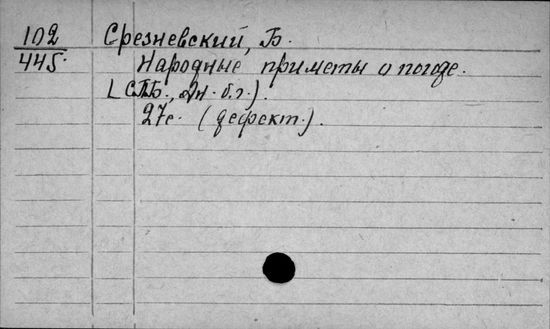 102 Срезневский, Б.
445. Народные приметы о погоде.
(СПБ., б.г.).
27с. (дефект.).